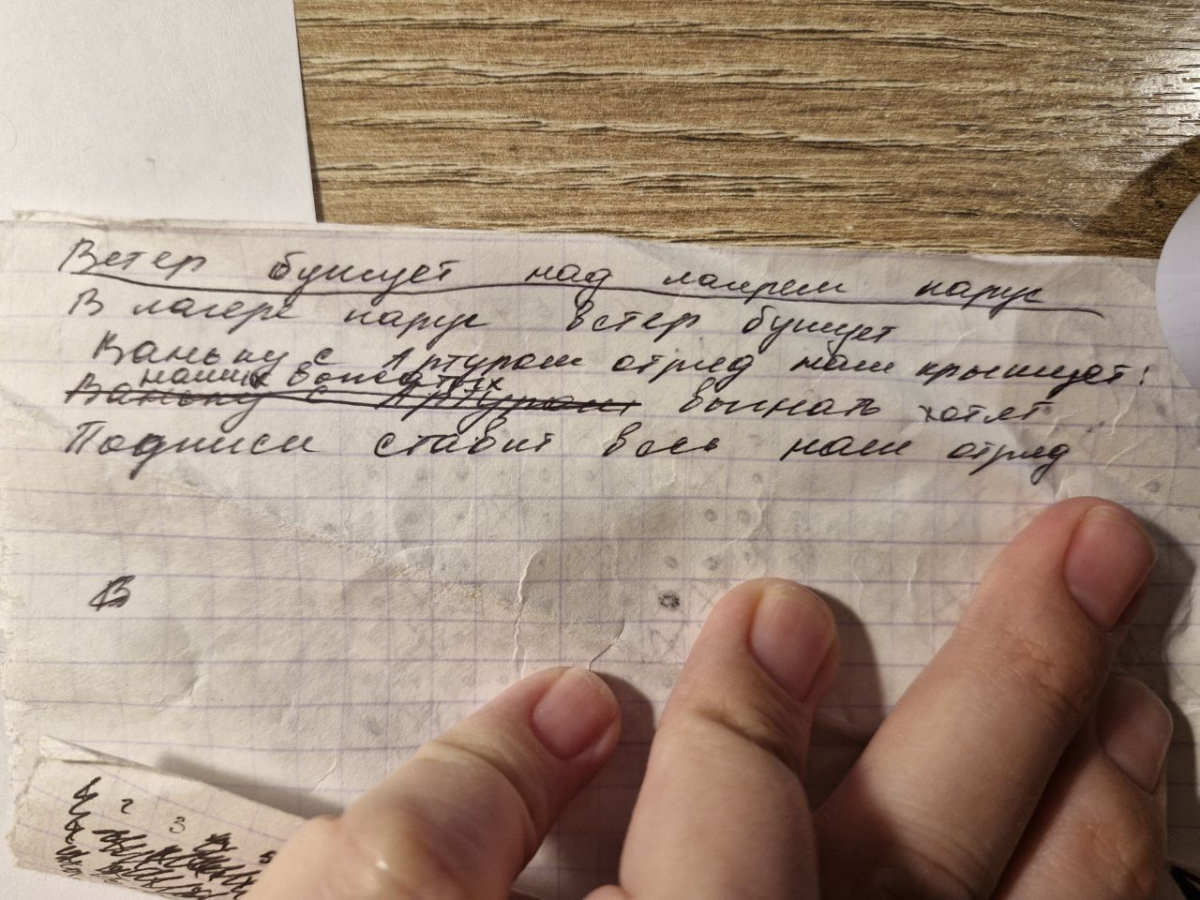 Ветер бушует над лагерем парус
В лагере парус ветер бушует
Ваньку с Артуром отряд наш крышует!
наших вожатых
Ваньку с Артуром выгнать хотят
Подписи ставит весь наш отряд
В
2 3 5